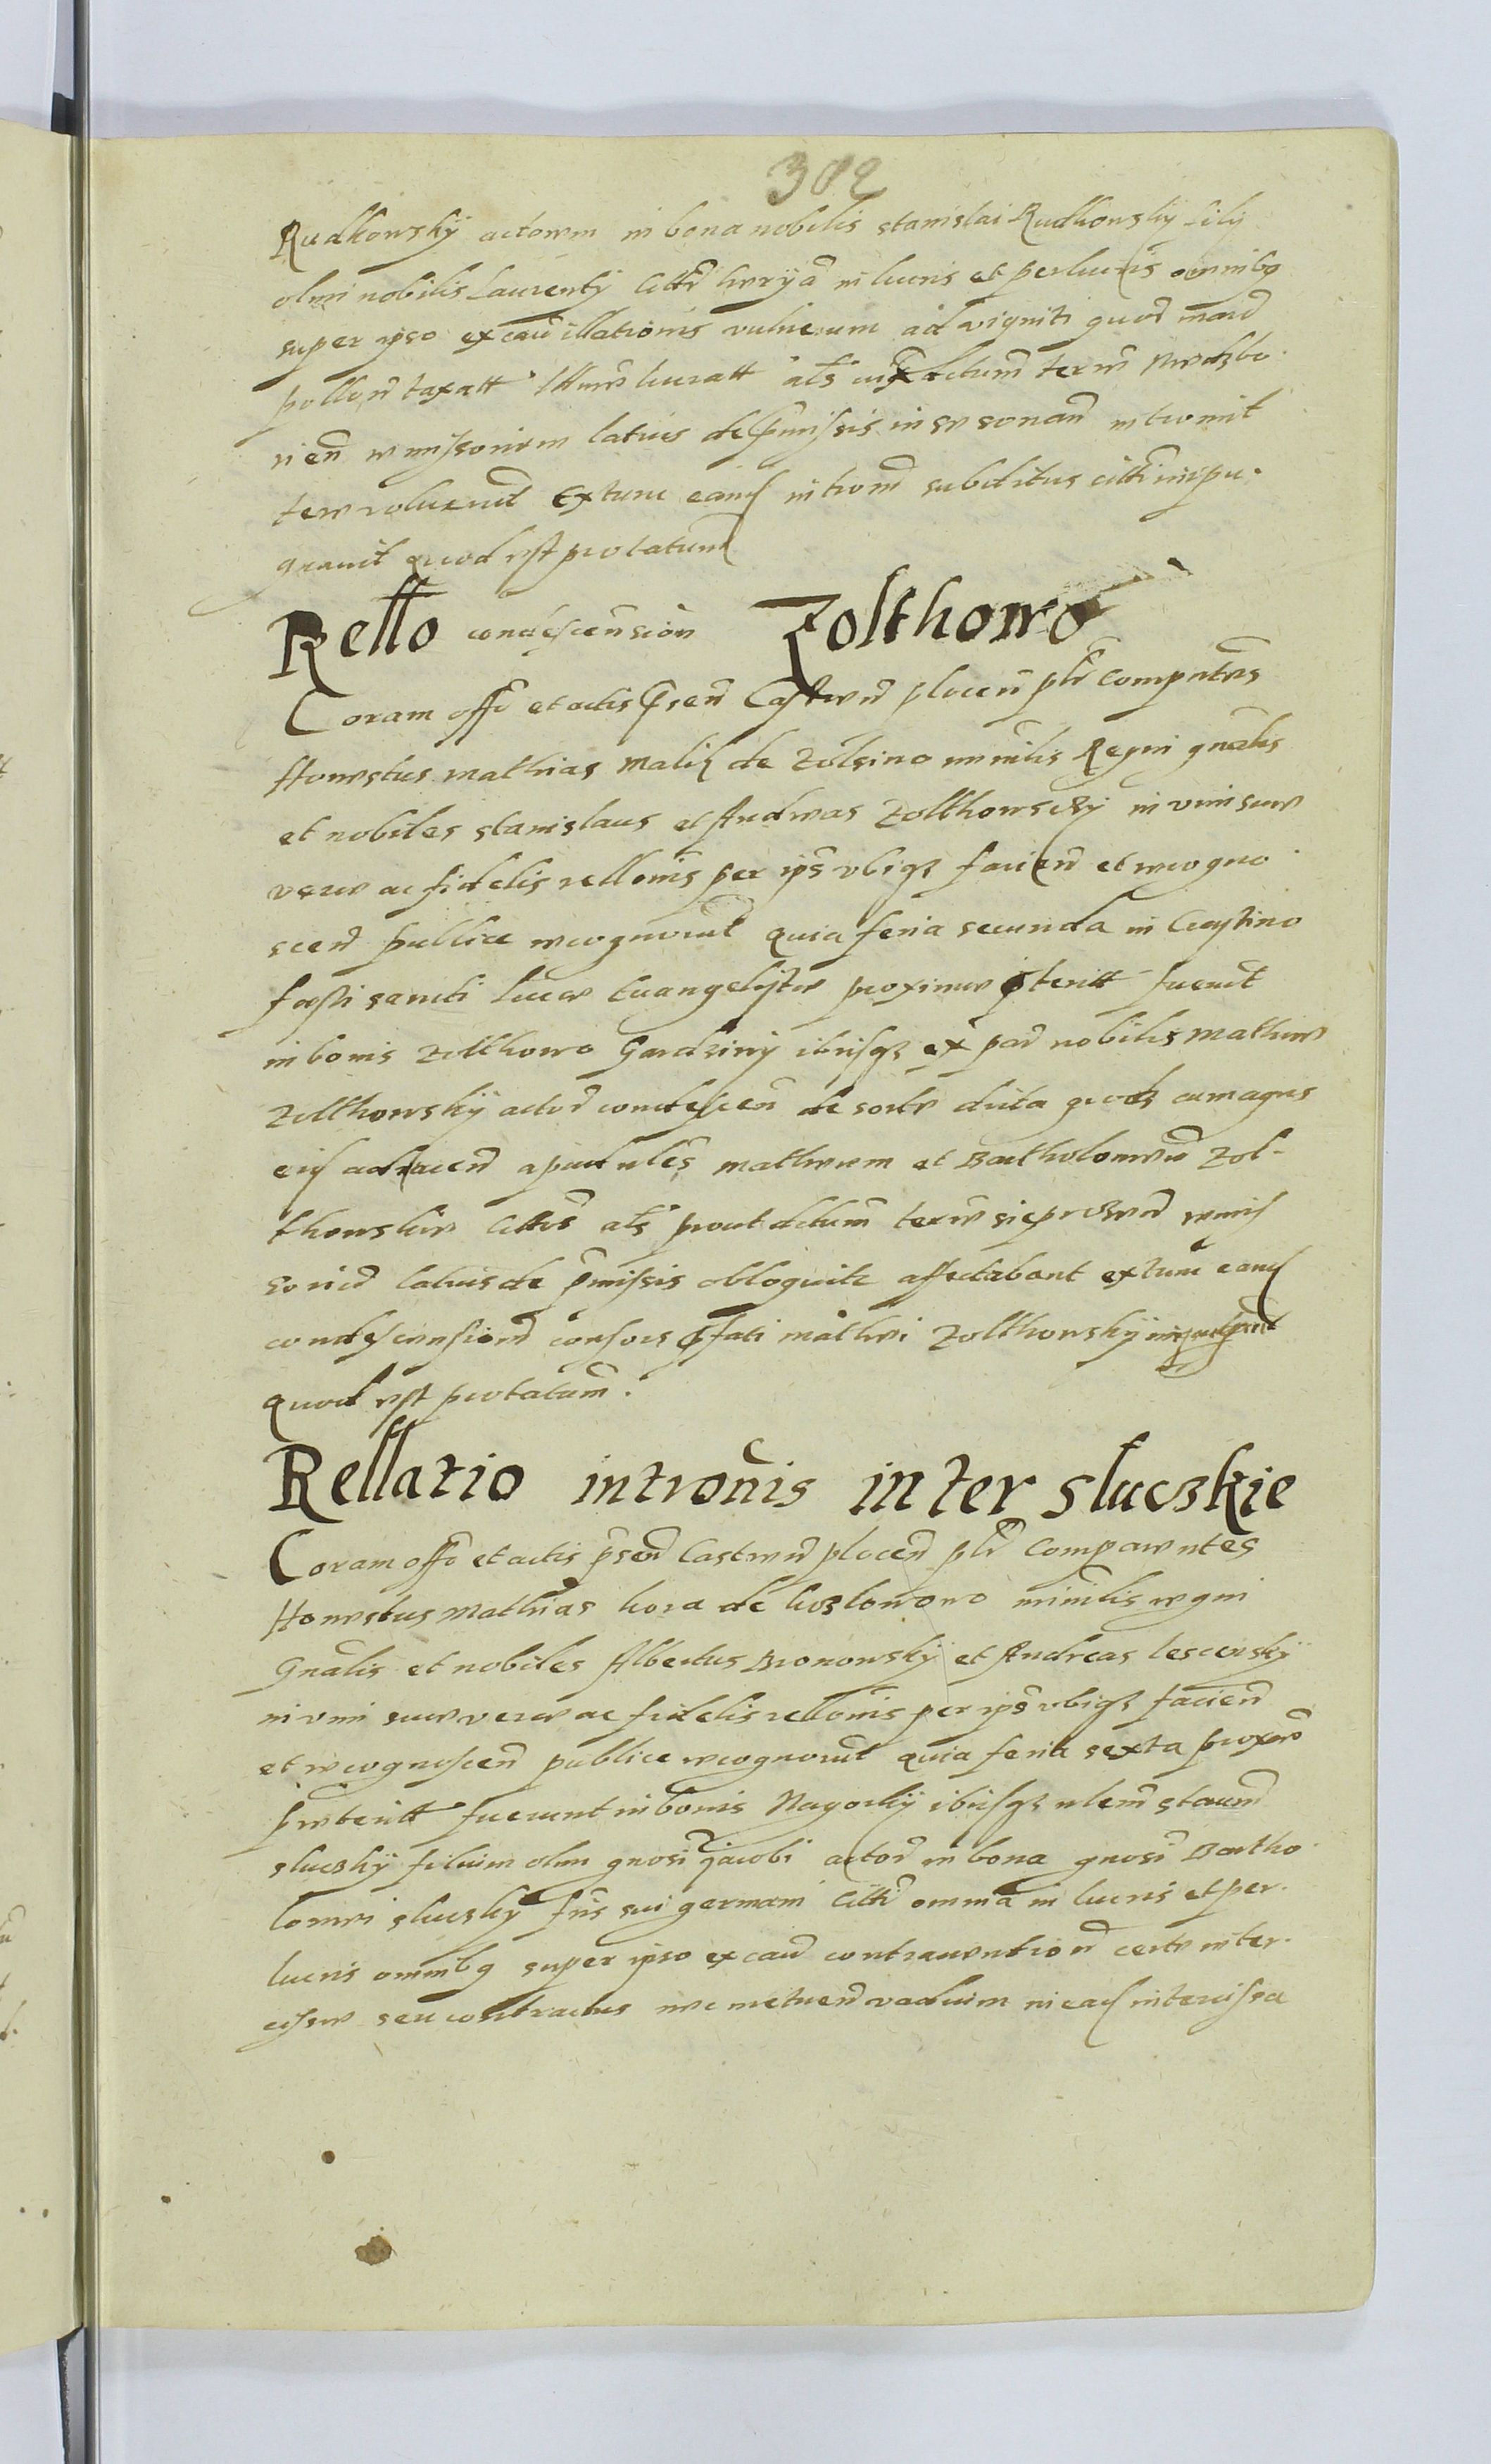 302
Rudkowskÿ actorem in bona nobilis Stanislai Rudkowskÿ filÿ
olim nobilis Laurentÿ citti in lucris et perlucris omnibq
super ipso ex cau illationis vulnerum ad viginti quo
pollon taxatt lucratt als iuxta dictum term
rien remissorium latius de pmissis in se sonan intromit
tere voluerunt Extunc eand introm subditus citti impu
gnavit quod est protatum
Rello condescension Zolthowo
Coram offo et actis psen Castren plocen plr comparentes
Honestus Mathias Malik de Zolsino minrlis Regni gnalis
et nobiles Stanislaus et Andreas Zolthowsckÿ in vim sue
vere ac fidelis rellonis per ips vbiqz facien et recogno
scen publice recognorut quia feria secunda in Crastino
festi sancti Luce Evangeliste proxime pteritt fuerut
in bonis Zolthowo Gardzinÿ ibiqz ex par nobilis Mathie
Zolthowskÿ actor condescen de sorte dicta cum agris
eiq adiacen apud nles Matheum et Bartholomeu Zol-
thowskie cittos als prout dictum term remis
soriu latius de pmissis obloquitr affectabant extunc eand
condescensione consors pfati Mathei Zolthowskÿ impugnit
quod est protatum.
Rellatio intronis inter Sluczkie
Coram offo et actis psen Castren plocen plr Comparentes
Honestus Mathias kora de kozlowowo minrlis regni
Gnalis et nobiles Albertus Bronowskÿ et Andreas
in vim sue vere ac fidelis rellonis per ips vbiqz facien
et recognoscen publice recognorut quia feria sexta proxime
preteritt fuerunt in bonis Nagorki ibiqz nlem Staum
Sluczkÿ filium olim gnosi Jacobi actor in bona gnosi Bartho
lomei Sluczkÿ fris sui germani citti omnia in lucris et per
lucris omnibq super ipso ex cau contravention certe inter
cise seu contractus nec metuen vadium in eaq intercisa